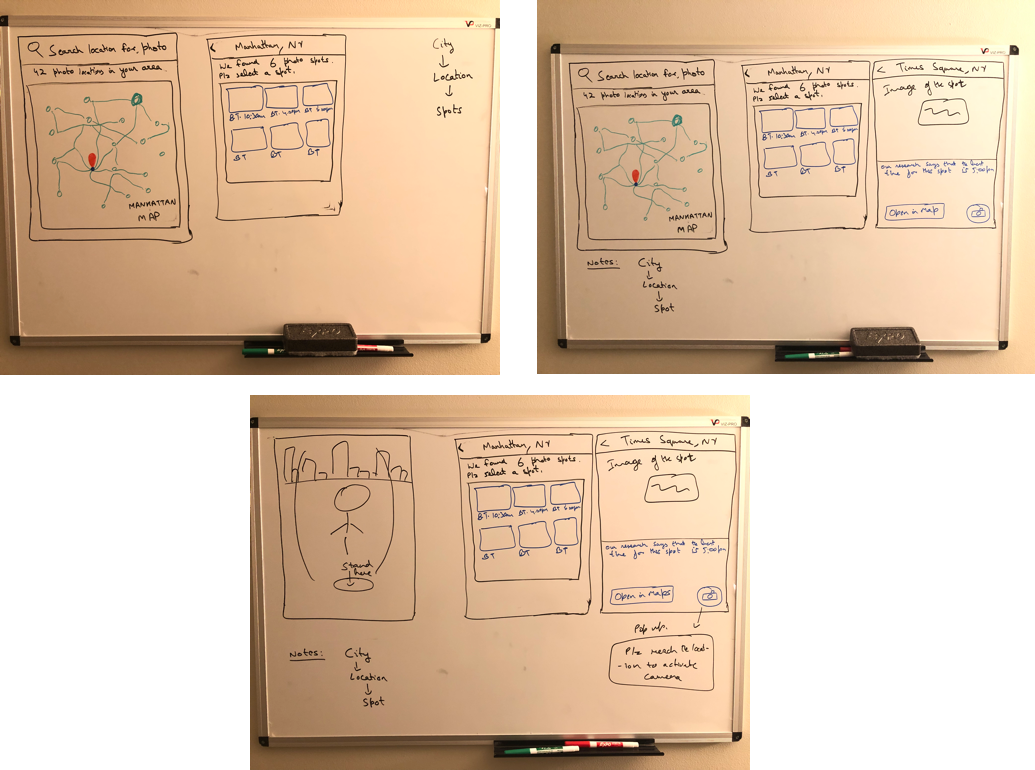 Search location for, photo
42 photo locations in your area.
MANHATTAN
MAP
Manhattan, NY
We found 6 photo spots.
Plz select a spot.
BT: 10:30am BT: 4:00pm BT: 6:00pm
BT BT BT
City
Location
Spots
EXPO
Search location for, photo
42 photo locations in your area.
MANHATTAN
MAP
Manhattan, NY
We found 6 photo spots.
Plz select a spot.
BT: 10:30am BT: 4:00pm BT 6:00pm
BT BT BT
Times Square, NY
Image of the spot
Our research says that the best
time for this spot is 5:00pm
Open in Map
Notes: City
Location
Spot
EXPO
Stand
here
Manhattan, NY
We found 6 photo spots.
Plz select a spot.
BT: 10:30am BT: 4:00pm BT 6:00pm
BT BT BT
Times Square, NY
Image of the spot
Our research says that the best
time for this spot is 5:00pm
Open in Maps
Pop up.
Plz reach the locat-
-ion to activate
camera
Notes: City
Location
Spot